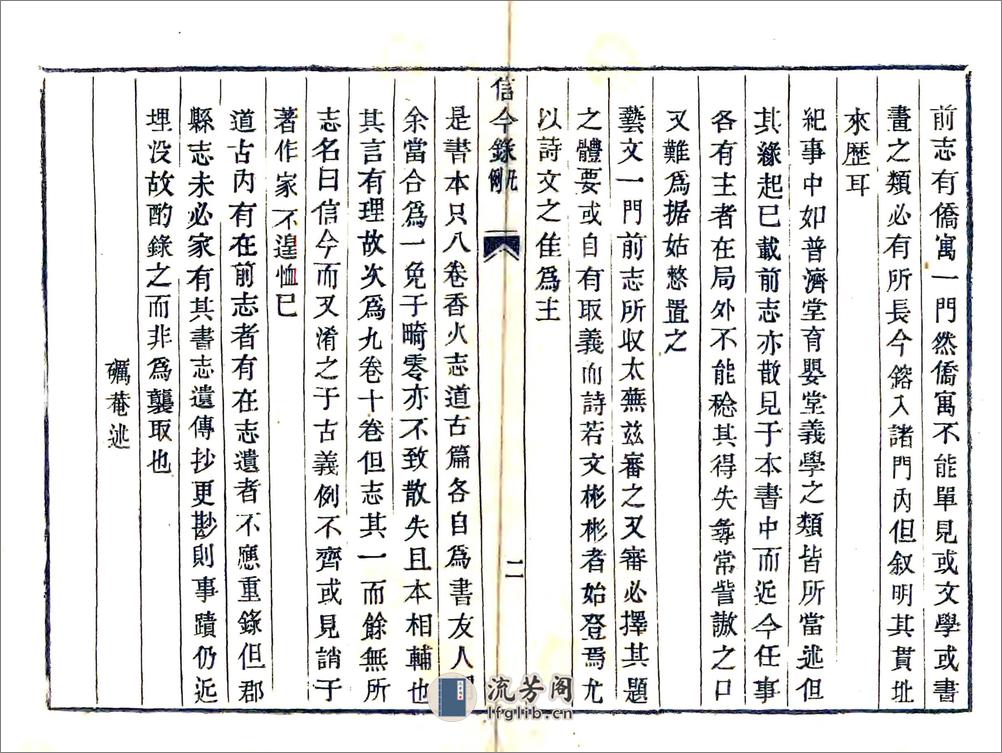 前志有僑寓一門然僑寓不能單見或文學或書
畫之類必有所長今鎔入諸門內但叙明其貫址
來歷耳
紀事中如普濟堂育嬰堂義學之類皆所當述但
其緣起已載前志亦散見于本書中而近今任事
各有主者在局外不能稔其得失尋常訾謷之口
又難爲据姑憗置之
藝文一門前志所收太蕪茲審之又審必擇其題
之體要或自有取義而詩若文彬彬者始登焉尤
以詩文之佳爲主
信今錄 凡例 二
是書本只八卷香火志道古篇各自爲書友人
余當合爲一免于畸零亦不致散失且本相輔也
其言有理故次爲九卷十卷但志其一而餘無所
志名曰信今而又淆之于古義例不齊或見誚于
著作家不遑恤已
道古內有在前志者有在志遺者不應重錄但郡
縣志未必家有其書志遺傳抄更尠則事蹟仍近
埋没故酌錄之而非爲襲取也
礪菴述
流芳阁
lfglib.cn